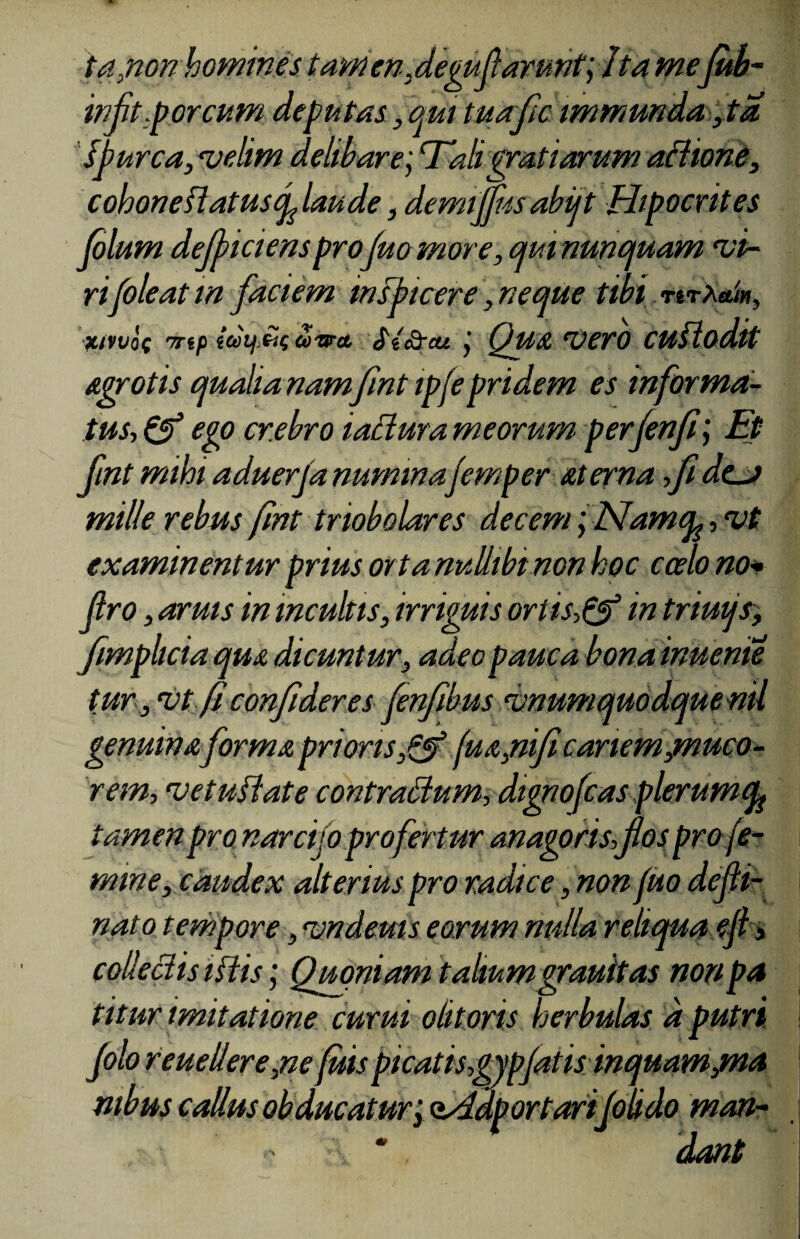 ta,non homines tamen,degustarunt; Ita me sub-
insit.porcum deputas, qui tua sic immunda, tā
spurca, velim delibare; Tali gratiarum actione,
cohonestatusq; laude, demissus abijt Hipocrites
solum despiciens pro suo more, qui nunquam vi-
ri soleat in faciem inspicere, neque tibi
Quæ vero custodit
ægrotis qualia nam sint ipse pridem es informa-
tus, & ego crebro iactura meorum persensi; Et
sint mihi aduersa numina semper æterna, si de
mille rebus sint triobolares decem; Namq;, vt
examinentur prius orta nullibi non hoc cœlo no-
stro, aruis in incultis, irriguis ortis,& in triuijs,
simplicia quæ dicuntur, adeo pauca bona inueniē
tur, vt si consideres sensibus vnumquodque nil
genuinæ formæ prioris,& suæ,nisi cariem,muco-
rem, vetustate contractum, dignoscas plerumq;
tamen pro narcijo profertur anagoris,flos pro se-
mine, caudex alterius pro radice, non suo desti-
nato tempore, vndeuis eorum nulla reliqua est,
collectis istis; Quoniam talium grauitas non pa
titur imitatione curui olitoris herbulas à putri
solo reuellere,ne suis picatis,gypsatis inquam,ma
nibus callus obducatur; Adportari solido man-
dant